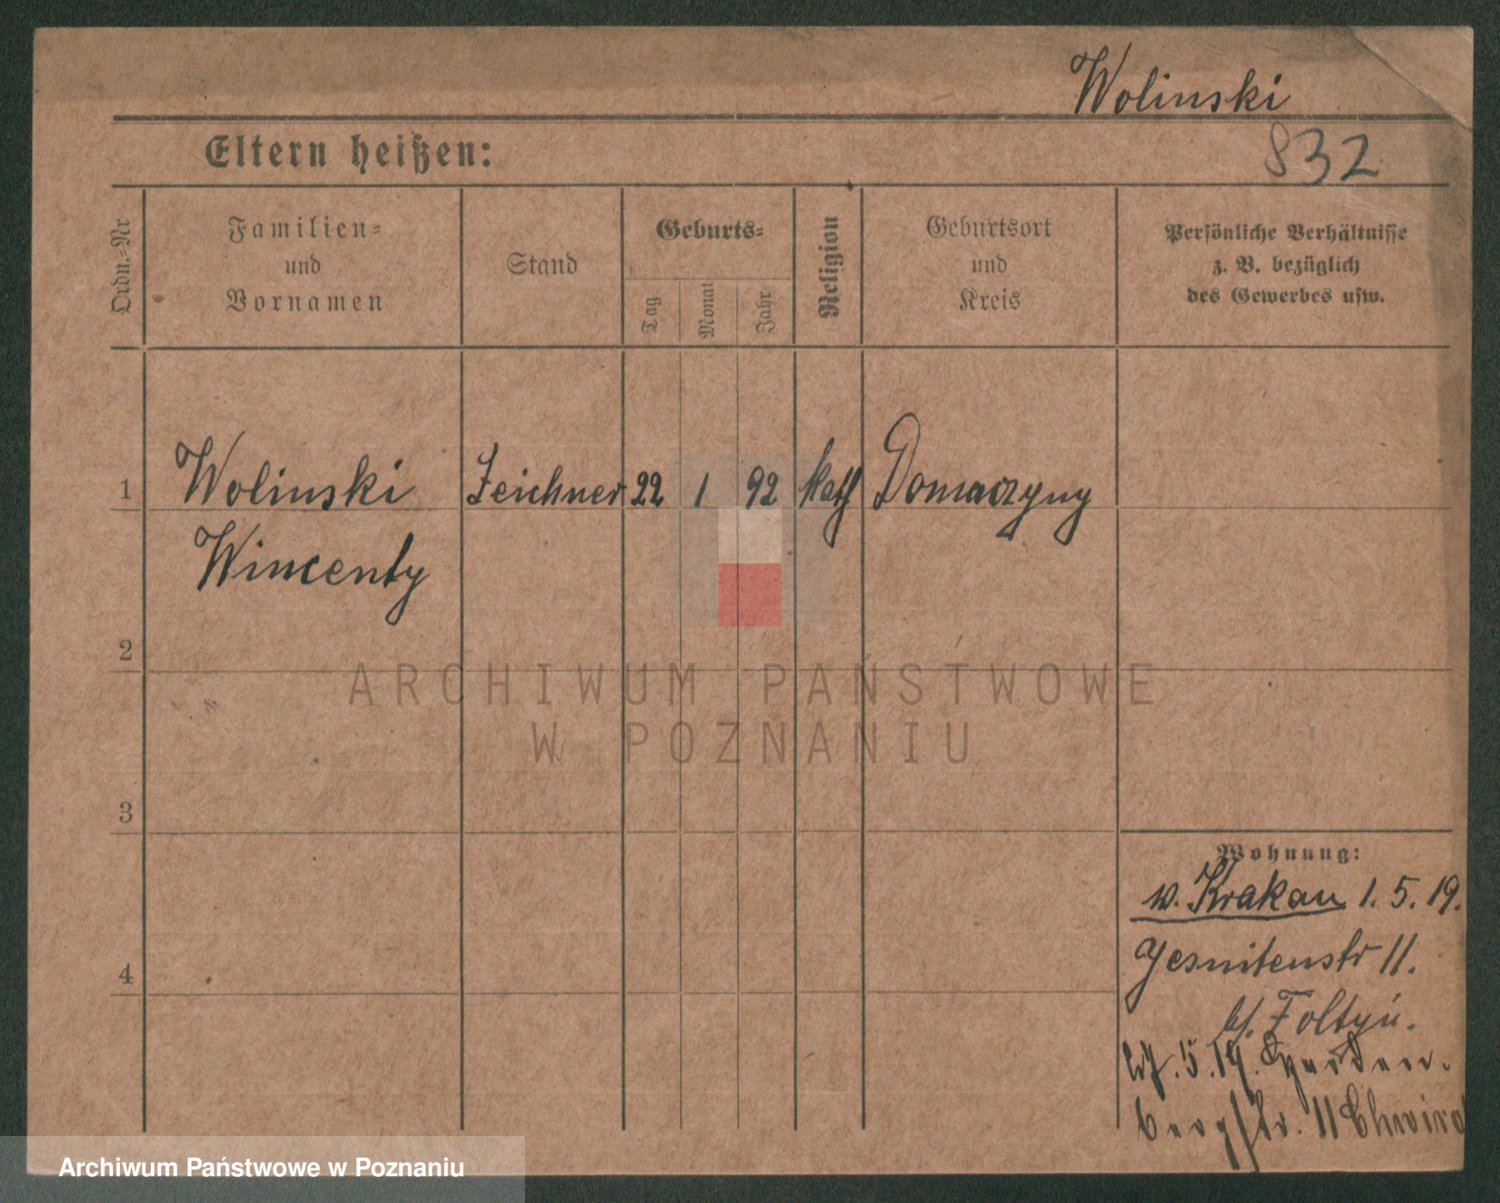 Wolinski
832
Eltern heißen:
Ordn.-Nr
Familien-
und
Vornamen
Stand
Geburts-
Tag
Monat
Jahr
Religion
Geburtsort
und
Kreis
Persönliche Verhältnisse
z. B. bezüglich
des Gewerbes usw.
1 Wolinski Zeichner 22 1 92 kath Domaczyny
Wincenty
2
ARCHIWUM PAŃSTWOWE
W POZNANIU
3
Wohnung:
v. Krakau 1. 5. 19.
Jesuitenstr 11.
b/. Foltyń.
4
5. 19.
bergstr. 11
Archiwum Państwowe w Poznaniu